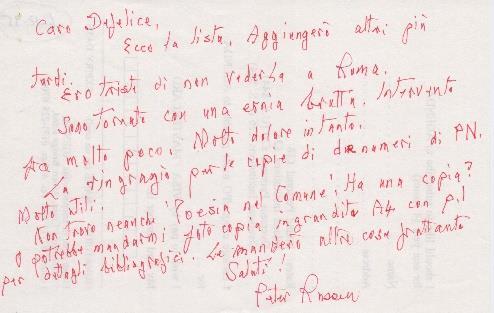 Caro Defelice,
Ecco la lista. Aggiungerò altri più
tardi.
Ero triste di non vederLa a Roma.
Sono tornato con una ernia brutta. Intervento
fra molto poco. Molto dolore intanto.
La ringrazio per le copie di due numeri di PN.
Molto utili.
Non trovo neanche 'Poesia nel Comune'. Ha una copia?
O potrebbe mandarmi foto copia ingrandita A4 con p.1
per dettagli bibliografici. Le manderò altre cose frattanto
Saluti!
Peter Russell